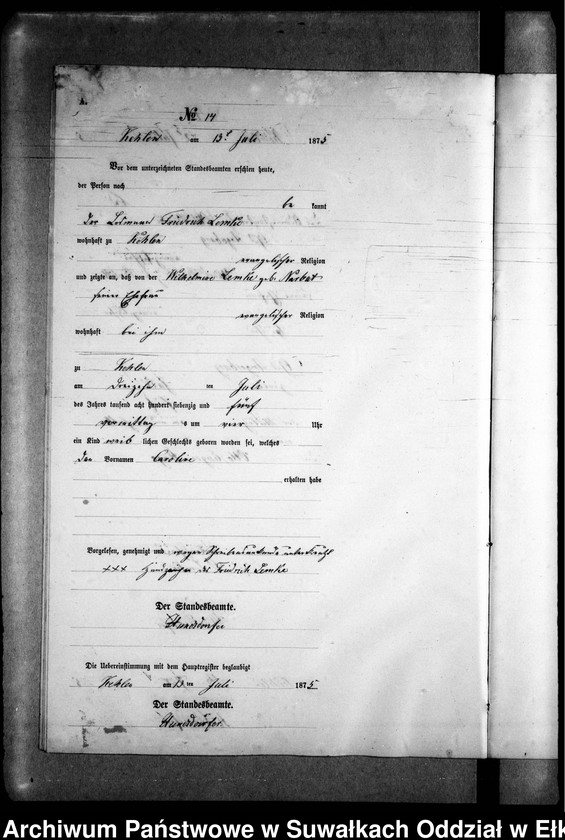 A.
№ 14
Kehlen am 13t Juli 1875
Vor dem unterzeichneten Standesbeamten erschien heute,
der Person nach
be kannt
der Losmann Friedrich Lemke
wohnhaft zu Kehlen
evangelischer Religion
und zeigte an, daß von der Wilhelmine Lemke geb. Narbat
seiner Ehefrau
evangelischer Religion
wohnhaft bei ihm
zu Kehlen
am Dreizehn ten Juli
des Jahres tausend acht hundert siebenzig und fünf
vormittag s um vier Uhr
ein Kind weib lichen Geschlechts geboren worden sei, welches
den Vornamen Caroline
erhalten habe
Vorgelesen, genehmigt und wegen Schreibensunkunde unterkreuzt
+++ Handzeichen des Friedrich Lemke
Der Standesbeamte.
Die Uebereinstimmung mit dem Hauptregister beglaubigt
Kehlen am 13 ten Juli 1875
Der Standesbeamte.
Archiwum Państwowe w Suwałkach Oddział w Ełk